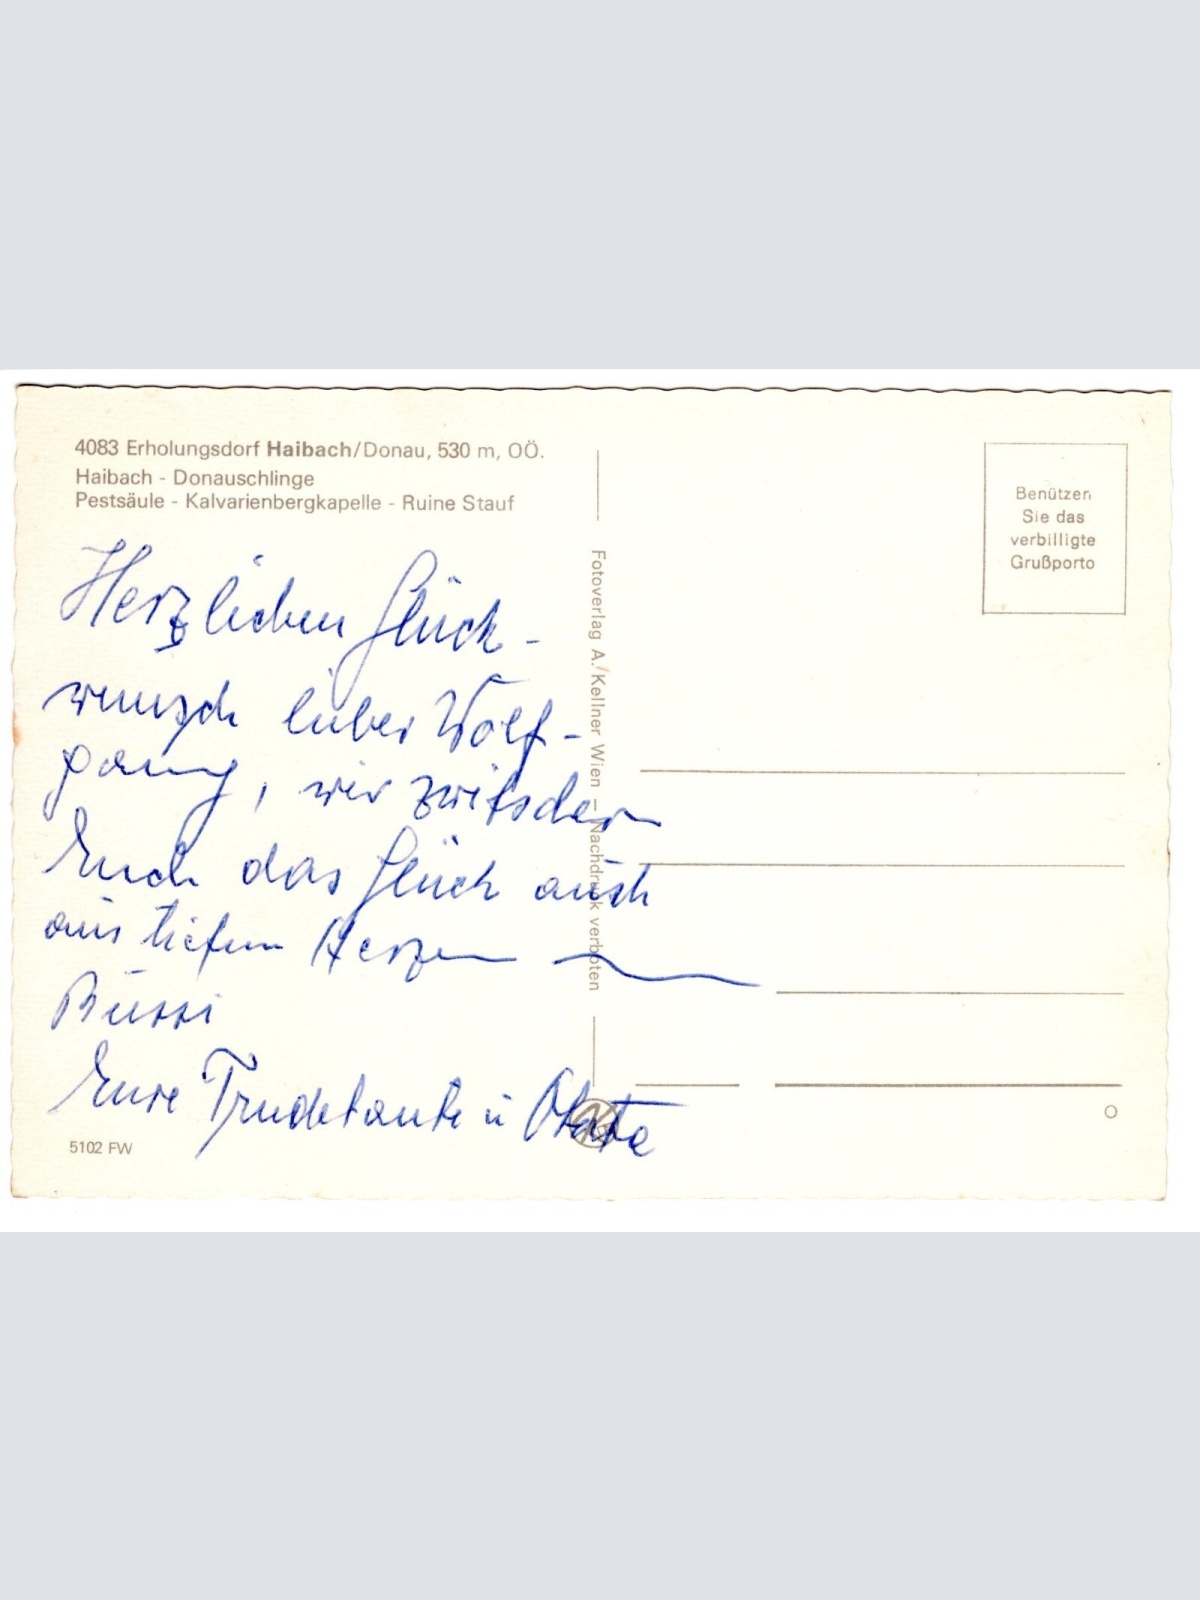 4083 Erholungsdorf Haibach/Donau, 530 m, OÖ.
Haibach - Donauschlinge
Pestsäule - Kalvarienbergkapelle - Ruine Stauf
Herzlichen Glück-
wunsch lieber Wolf-
gang, wir zwitschern
Euch das Glück auch
aus tiefem Herzen
Bussi
Eure Trudetante u
5102 FW
Fotoverlag A. Kellner Wien – Nachdruck verboten
Benützen
Sie das
verbilligte
Grußporto